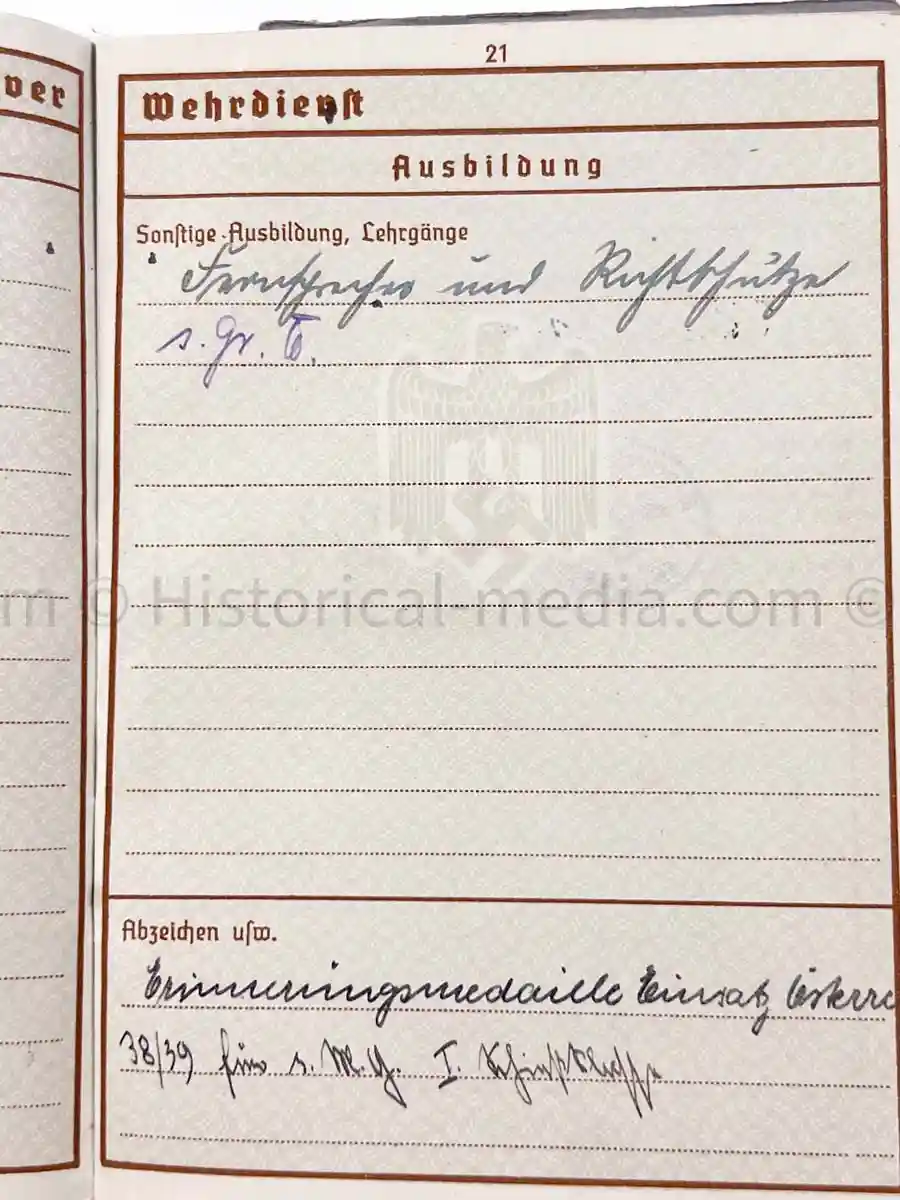 21
ver
Wehrdienst
Ausbildung
Sonstige Ausbildung, Lehrgänge
Fernsprecher und Richtschütze
s. Gr. W.
Abzeichen usw.
Erinnerungsmedaille Einsatz Österre
38/39 für s. M.G. I. Schießklasse
m © Historical-media.com ©